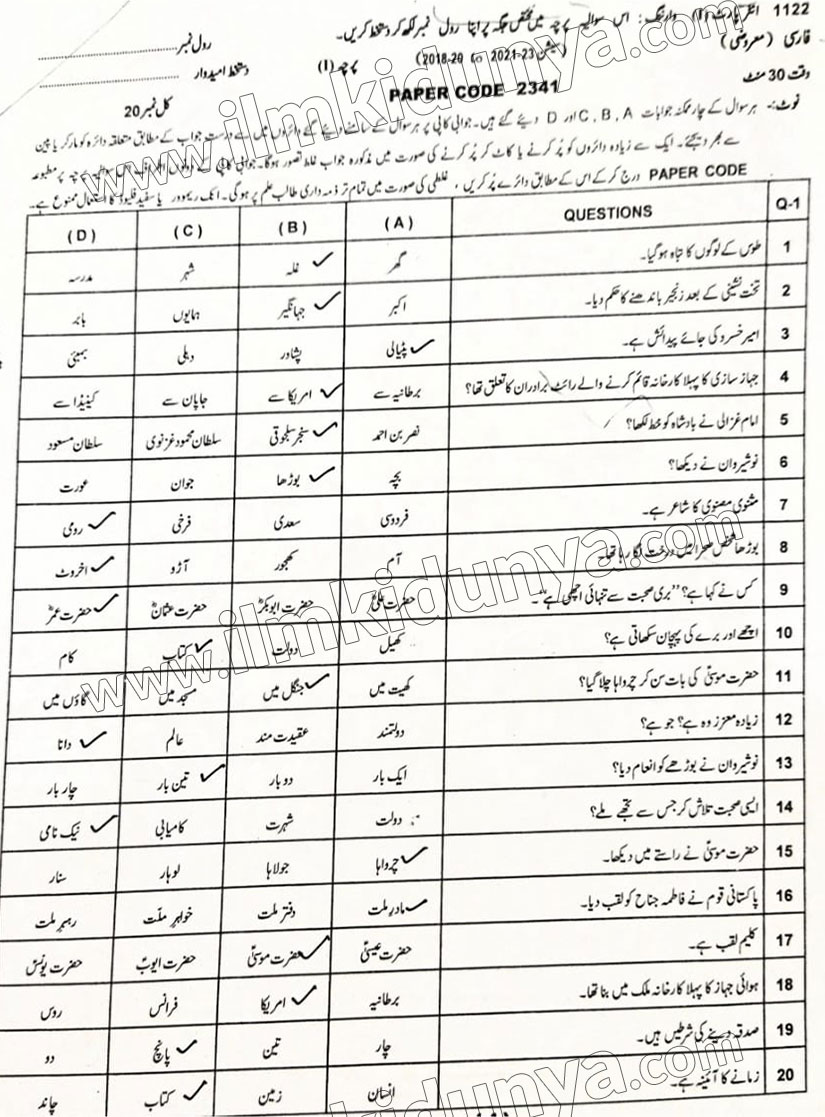 1122 انٹر پارٹ (I) وارننگ: اس سوالیہ پرچہ میں مختص جگہ پر اپنا رول نمبر لکھ کر دستخط کریں۔ رول نمبر
فارسی (معروضی) (سیشن 2021-23 to 2018-20) پرچہ (I) دستخط امیدوار
وقت 30 منٹ PAPER CODE 2341 کل نمبر 20
نوٹ:- ہر سوال کے چار ممکنہ جوابات C, B, A اور D دیئے گئے ہیں۔ جوابی کاپی پر ہر سوال کے سامنے دیئے گئے دائروں میں سے درست جواب کے مطابق متعلقہ دائرہ کو مارکر یا پین
سے بھر دیجئے۔ ایک سے زیادہ دائروں کو پُر کرنے یا کاٹ کر پُر کرنے کی صورت میں مذکورہ جواب غلط تصور ہوگا۔ جوابی کاپی کے دونوں اطراف اس سوالیہ پرچہ پر مطبوعہ
PAPER CODE درج کر کے اس کے مطابق دائرے پُر کریں، غلطی کی صورت میں تمام تر ذمہ داری طالب علم پر ہوگی۔ انک ریموور یا سفید فلیوڈ کا استعمال ممنوع ہے۔
Q-1 QUESTIONS (A) (B) (C) (D)
1 طوس کے لوگوں کا تباہ ہو گیا۔ گھر غلہ شہر مدرسہ
2 تخت نشینی کے بعد زنجیر باندھنے کا حکم دیا۔ اکبر جہانگیر ہمایوں بابر
3 امیر خسرو کی جائے پیدائش ہے۔ پٹیالی پشاور دہلی بمبئی
4 جہاز سازی کا پہلا کارخانہ قائم کرنے والے رائٹ برادران کا تعلق تھا؟ برطانیہ سے امریکا سے جاپان سے کینیڈا سے
5 امام غزالی نے بادشاہ کو خط لکھا؟ نصر بن احمد سنجر سلجوقی سلطان محمود غزنوی سلطان مسعود
6 نوشیروان نے دیکھا؟ بچہ بوڑھا جوان عورت
7 مثنوی معنوی کا شاعر ہے۔ فردوسی سعدی فرخی رومی
8 بوڑھا شخص صحرا میں درخت لگا رہا تھا۔ آم کھجور آڑو اخروٹ
9 کس نے کہا ہے؟ "بری صحبت سے تنہائی اچھی ہے"۔ حضرت علیؓ حضرت ابوبکرؓ حضرت عثمانؓ حضرت عمرؓ
10 اچھے اور برے کی پہچان سکھاتی ہے؟ کھیل دولت کتاب کام
11 حضرت موسیٰؑ کی بات سن کر چرواہا چلا گیا؟ کھیت میں جنگل میں مسجد میں گاؤں میں
12 زیادہ معزز وہ ہے؟ جو ہے؟ دولتمند عقیدت مند عالم دانا
13 نوشیروان نے بوڑھے کو انعام دیا؟ ایک بار دو بار تین بار چار بار
14 ایسی صحبت تلاش کر جس سے تجھے ملے؟ دولت شہرت کامیابی نیک نامی
15 حضرت موسیٰؑ نے راستے میں دیکھا۔ چرواہا جولاہا لوہار سنار
16 پاکستانی قوم نے فاطمہ جناح کو لقب دیا۔ مادرِ ملت دختر ملت خواہرِ ملّت رہبرِ ملت
17 کلیم لقب ہے۔ حضرت عیسیٰؑ حضرت موسیٰؑ حضرت ایوبؑ حضرت یونسؑ
18 ہوائی جہاز کا پہلا کارخانہ ملک میں بنا تھا۔ برطانیہ امریکا فرانس روس
19 صدقہ دینے کی شرطیں ہیں۔ چار تین پانچ دو
20 زمانے کا آئینہ ہے۔ انسان زمین کتاب چاند
www.ilmkidunya.com
www.ilmkidunya.com